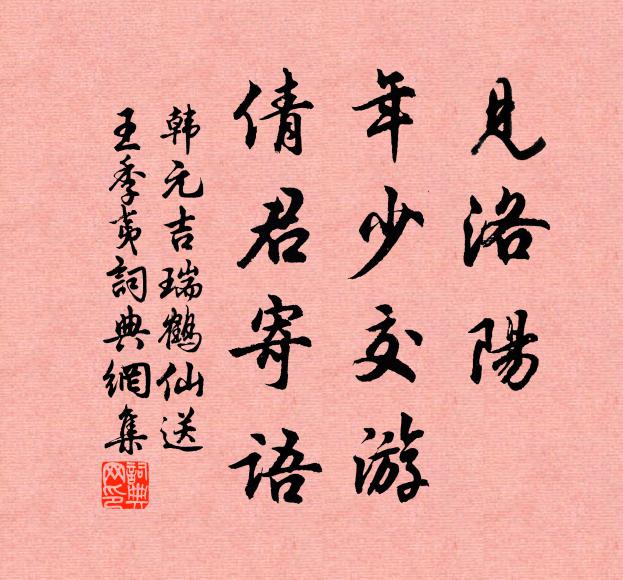 見洛陽
年少交游
倩君寄語
韩元吉瑞鶴仙送
王季夷詞典網集
詞典网印